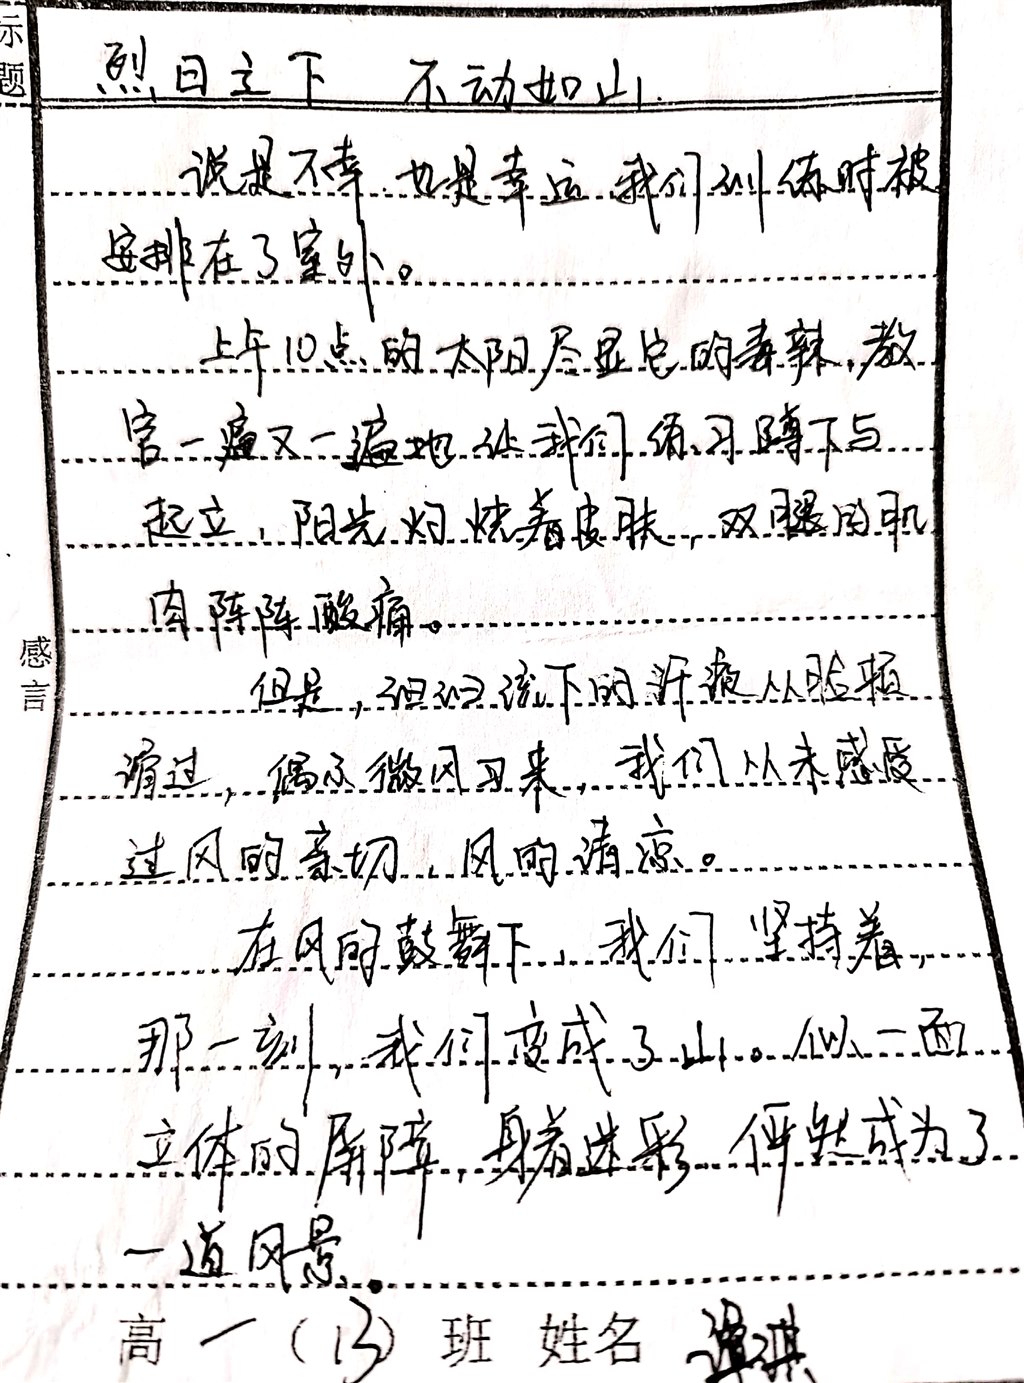 标题
烈日之下 不动如山.
说是不幸,也是幸运,我们训练时被
安排在了室外。
上午10点的太阳尽显它的毒辣,教
官一遍又一遍地让我们练习蹲下与
起立,阳光灼烧着皮肤,双腿的肌
肉阵阵酸痛。
但是,汩汩流下的汗液从脸颊
滑过,偶尔微风习来,我们从未感受
过风的亲切、风的清凉。
感言
在风的鼓舞下,我们坚持着,
那一刻,我们变成了山。似一面
立体的屏障,身着迷彩,俨然成为了
一道风景.
高一(13)班 姓名 谭琪